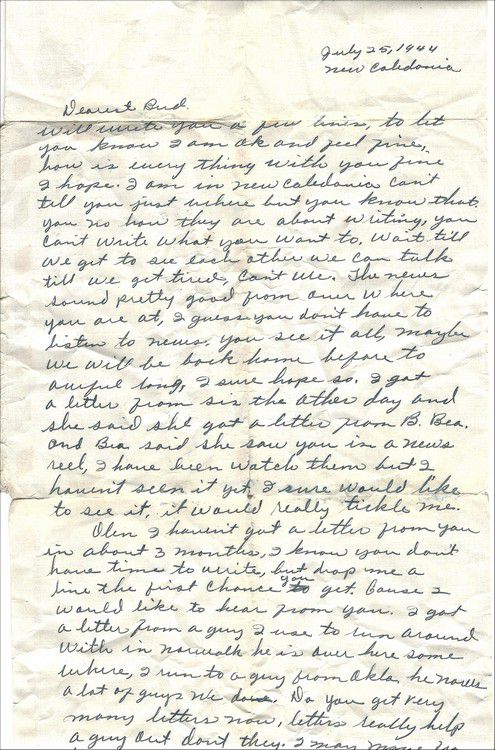 July 25, 1944
New Caledonia
Dearest Bud.
Will write you a few lines, to let
you know I am ok and feel fine,
how is every thing with you fine
I hope. I am in new Caledonia can't
tell you just where but you know that
you no how they are about writing, you
can't write what you want to. Wait till
we get to see each other we can talk
till we get tired, Can't we. The news
sound pretty good from over where
you are at, I guess you don't have to
listen to news, you see it all, maybe
we will be back home before to
awful long, I sure hope so. I got
a letter from sis the other day and
she said she got a letter from B. Bea.
and Bea said she saw you in a news
reel, I have been watch them but I
haven't seen it yet, I sure would like
to see it, it would really tickle me.
Olen I haven't got a letter from you
in about 3 months, I know you don't
have time to write, but drop me a
line the first chance you get. Cause I
would like to hear from you. I got
a letter from a guy I use to run around
with in norwalk he is over here some
where, I run to a guy from Okla. he nows
a lot of guys we does. Do you get very
many letters now, letters really help
a guy out don't they. I may